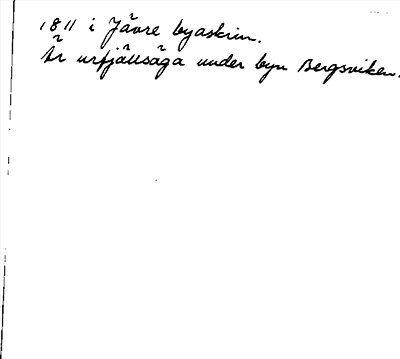 1811 i Jävre byaskrin.
Är urfjällsäga under byn Bergsviken.